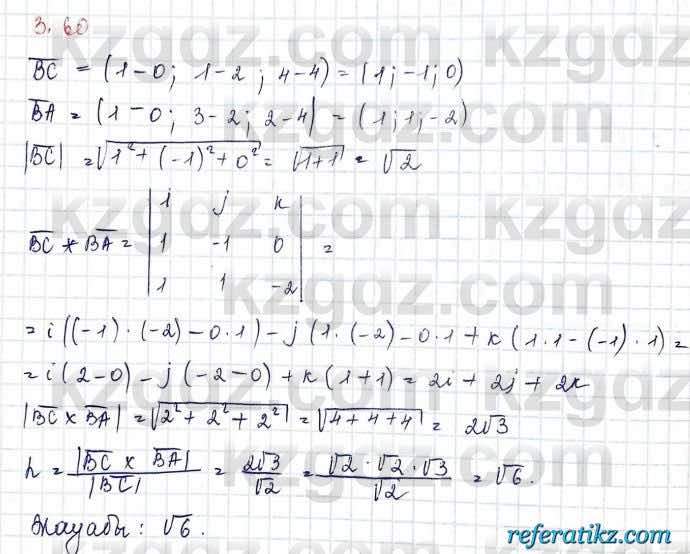 3.60
BC = (1-0; 1-2; 4-4) = (1; -1; 0)
BA = (1-0; 3-2; 2-4) = (1; 1; -2)
|BC| = √1² + (-1)² + 0² = √1+1 = √2
i j k
BC * BA = 1 -1 0 =
1 1 -2
= i((-1)·(-2) - 0·1) - j(1·(-2) - 0·1 + k(1·1 - (-1)·1) =
= i(2-0) - j(-2-0) + k(1+1) = 2i + 2j + 2k
|BC × BA| = √2² + 2² + 2² = √4+4+4 = 2√3
h = |BC × BA| / |BC| = 2√3 / √2 = √2·√2·√3 / √2 = √6.
Жауабы: √6.
kzgdz.com
referatikz.com